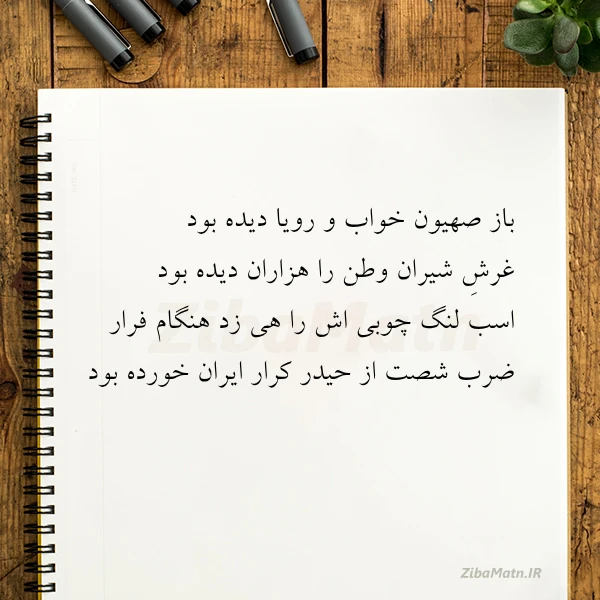 باز صهیون خواب و رویا دیده بود
غرشِ شیران وطن را هزاران دیده بود
اسب لنگ چوبی اش را هی زد هنگام فرار
ضرب شصت از حیدر کرار ایران خورده بود
ZibaMatn
ZibaMatn.IR